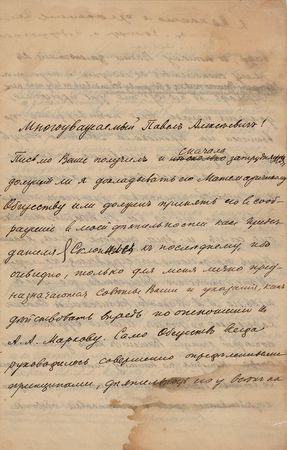 Многоуважаемый Павелъ Алексѣевичъ!
Письмо Ваше получилъ и сначала затруднялся
долженъ ли я докладывать его Математическому
Обществу или долженъ принять его въ соо-
браженіе въ моей дѣятельности какъ предсѣ-
дателя. Склоняюсь къ послѣднему, ибо
очевидно, только для меня лично пред-
назначаются совѣты Ваши и указанія, какъ
дѣйствовать впредь по отношенію къ
А. А. Маркову. Само Общество всегда
руководилось совершенно опредѣленными
принципами, дѣятельность его у всѣхъ на